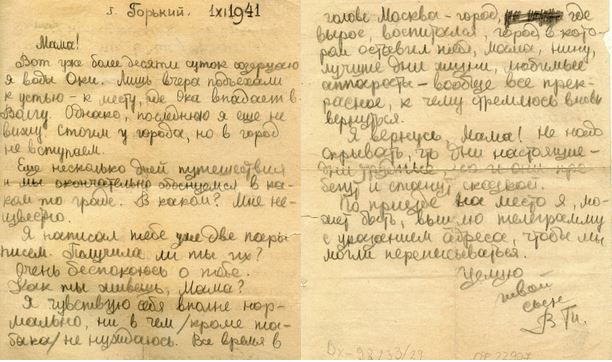 г. Горький. 1XI1941
Мама!
Вот уже более десяти суток созерцаю
я воды Оки. Лишь вчера подъехали
к устью – к месту, где Ока впадает в
Волгу. Однако, последнюю я еще не
вижу. Стоим у города, но в город
не вступаем.
Еще несколько дней путешествия
и мы окончательно обоснуемся в ка-
ком то граде. В каком? Мне не-
известно.
Я написал тебе уже две пары
писем. Получила ли ты их?
Очень беспокоюсь о тебе.
Как ты живешь, Мама?
Я чувствую себя вполне нор-
мально, ни в чем /кроме та-
бака/ не нуждаюсь. Все время в
голове Москва – город, где
вырос, воспитался, город в кото-
ром оставил тебя, мама, Нину,
лучшие дни жизни, любимые
аппараты – вообще все прек-
расное, к чему стремлюсь вновь
вернуться.
Я вернусь, Мама! Не надо
что дни настоящие –
дни
и станут сказкой.
По приезде на место я, мо-
жет быть, вышлю телеграмму
с указанием адреса, чтобы мы
могли переписываться.
Целую
твой
сын